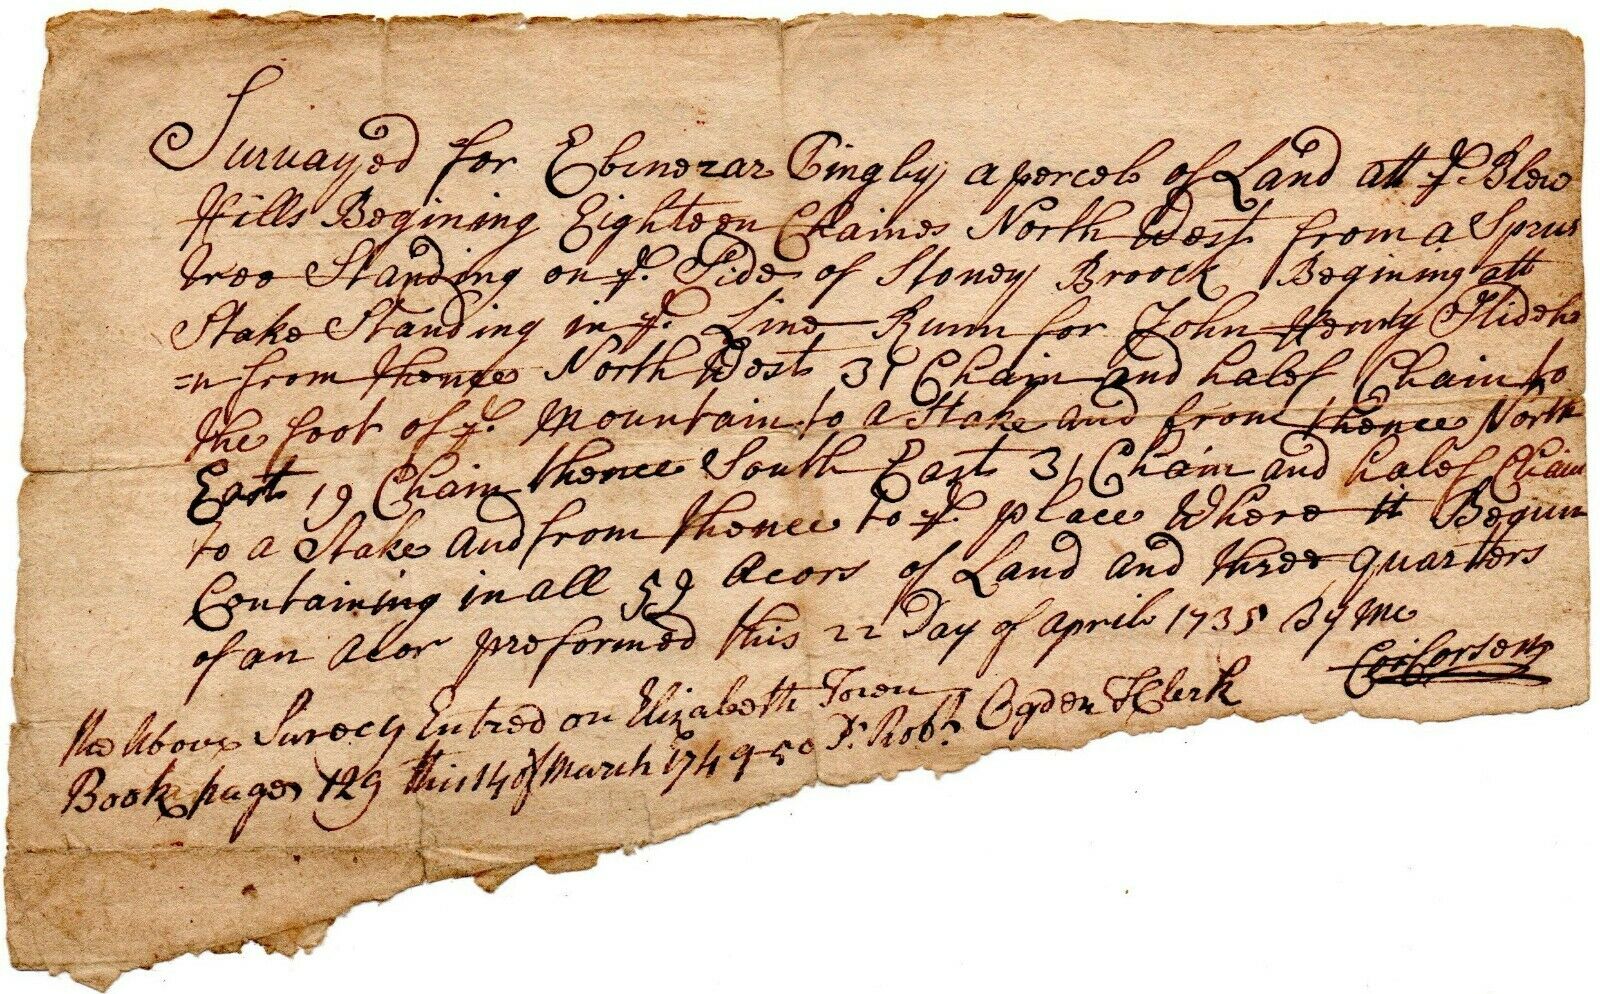 Survayed for Ebinezar Tingly a percel of Land att ye Blew
Hills Begining Eighteen Chaines North West from a Sprus
tree Standing on ye Side of Stoney Broock Begining att
Stake Standing in ye Line Runn for John Henry
=n from thence North West 31 Chain and halef Chain to
the foot of ye mountain to a Stake and from thence North
East 19 Chain thence South East 31 Chain and halef Chain
to a Stake and from thence to ye place Where it Begun
Containing in all 59 Acors of Land and three quarters
of an Acor preformed this 22 Day of april 1735 By me
Cor Corsen
The Above Survey Entred on Elizabeth Town
Book page 129 this 14 of March 1749-50 Pr Robt Ogden Clerk